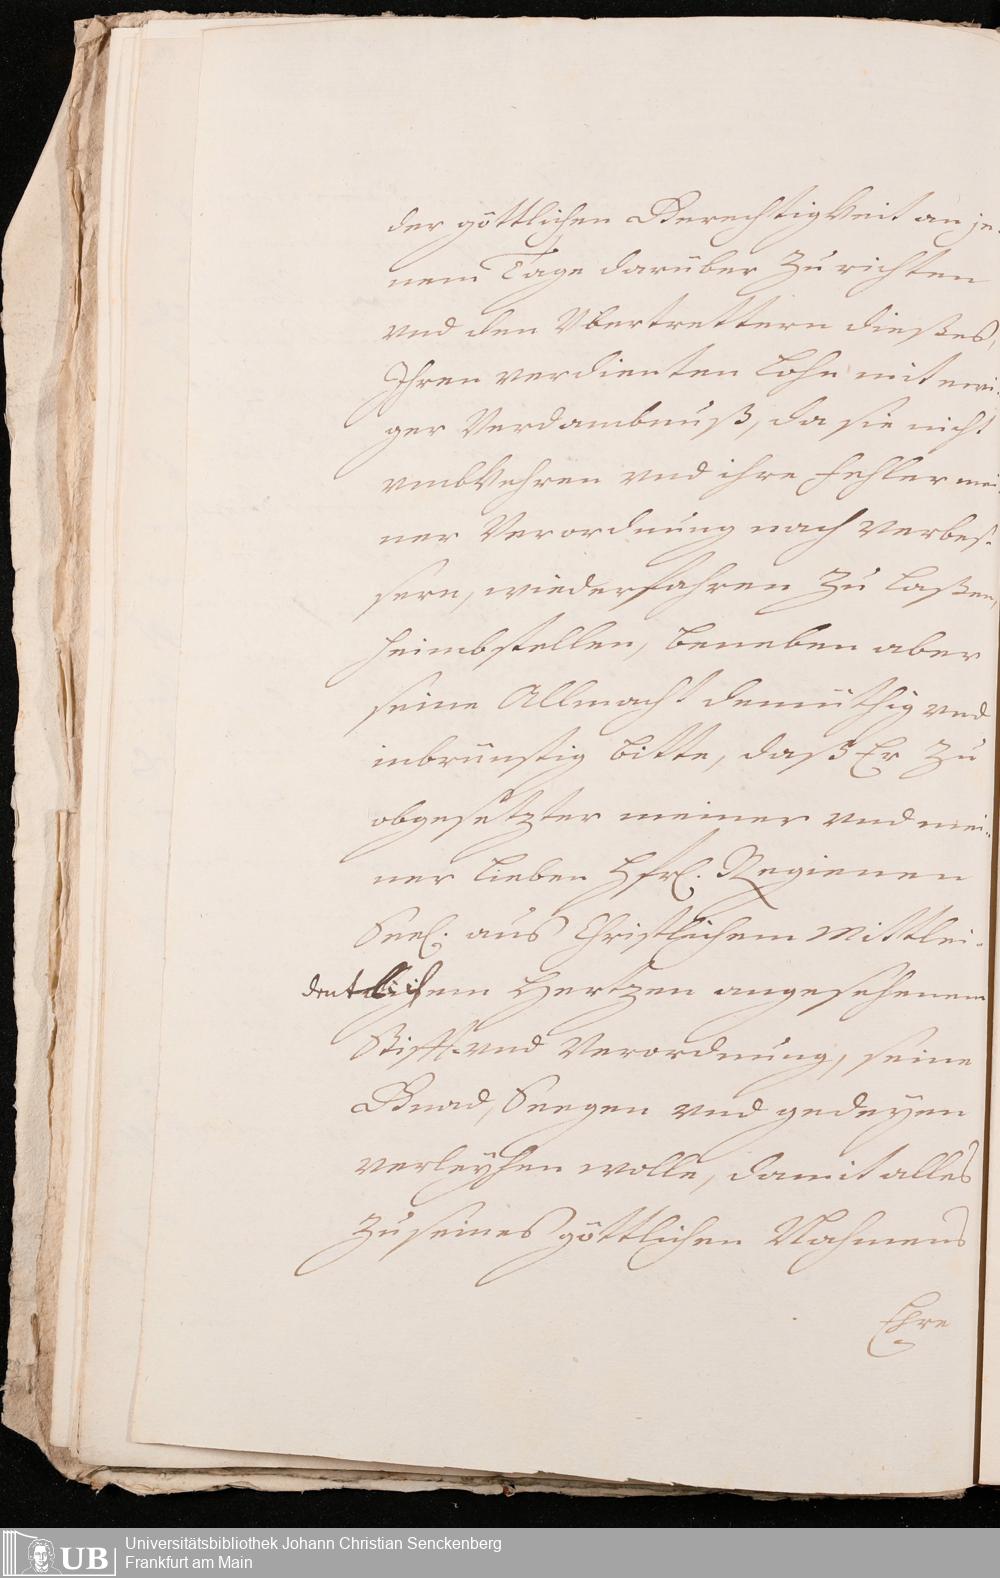 der göttlichen Gerechtigkeit an je-
nem Tage darüber zu richten
vnd den Vbertrettern dießes,
Ihren verdienten Lohn mit ewi-
ger Verdambnuß, da sie nicht
vmbkehren vnd ihre Fehler mei-
ner Verordnung nach verbes-
sern, wiederfahren zu laßen,
heimbstellen, beneben aber
seine Allmacht demüthig vnd
inbrünstig bitte, daß Er zu
obgesetzter meiner vnd mei-
ner lieben Hfrl. Reginen
Seel. aus Christlichem Mittlei-
dentlichem Hertzen angesehenem
Stifft- vnd Verordnung, seine
Gnad, Seegen vnd gedeyen
verleyhen wolle, damit alles
zu seines göttlichen Nahmens
Ehre
UB
Universitätsbibliothek Johann Christian Senckenberg
Frankfurt am Main